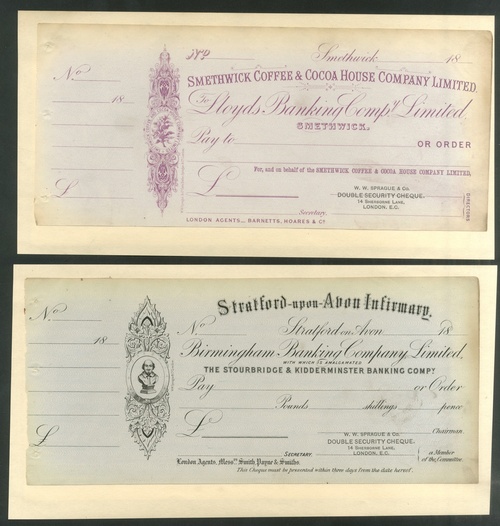 No
Smethwick 18
No
SMETHWICK COFFEE & COCOA HOUSE COMPANY LIMITED.
18
To Lloyds Banking Compy. Limited,
SMETHWICK.
Pay to OR ORDER
For, and on behalf of the SMETHWICK COFFEE & COCOA HOUSE COMPANY LIMITED,
£
£
W. W. SPRAGUE & Co.
DOUBLE SECURITY CHEQUE.
14 SHERBORNE LANE,
LONDON, E.C.
DIRECTORS
Secretary.
LONDON AGENTS,.. BARNETTS, HOARES & Co.
Stratford-upon-Avon Infirmary.
No
Stratford on Avon 18
No
18
Birmingham Banking Company, Limited,
WITH WHICH IS AMALGAMATED
THE STOURBRIDGE & KIDDERMINSTER BANKING COMPY
Pay or Order
Pounds shillings pence
£
£
Chairman.
W. W. SPRAGUE & Co.
DOUBLE SECURITY CHEQUE.
14 SHERBORNE LANE,
LONDON, E.C.
SECRETARY.
a Member
of the Committee.
London Agents, Messrs. Smith, Payne & Smiths.
This Cheque must be presented within three days from the date hereof.